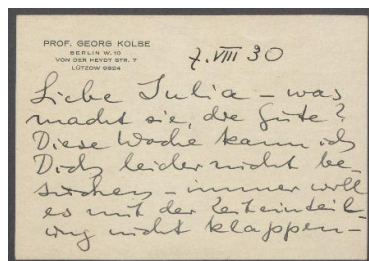 PROF. GEORG KOLBE
BERLIN W. 10
VON DER HEYDT STR. 7
LÜTZOW 9824
7. VIII 30
Liebe Julia – was
macht sie, die Gute?
Diese Woche kann ich
Dich leider nicht be-
suchen – immer will
es mit der Zeiteinteil-
ung nicht klappen –